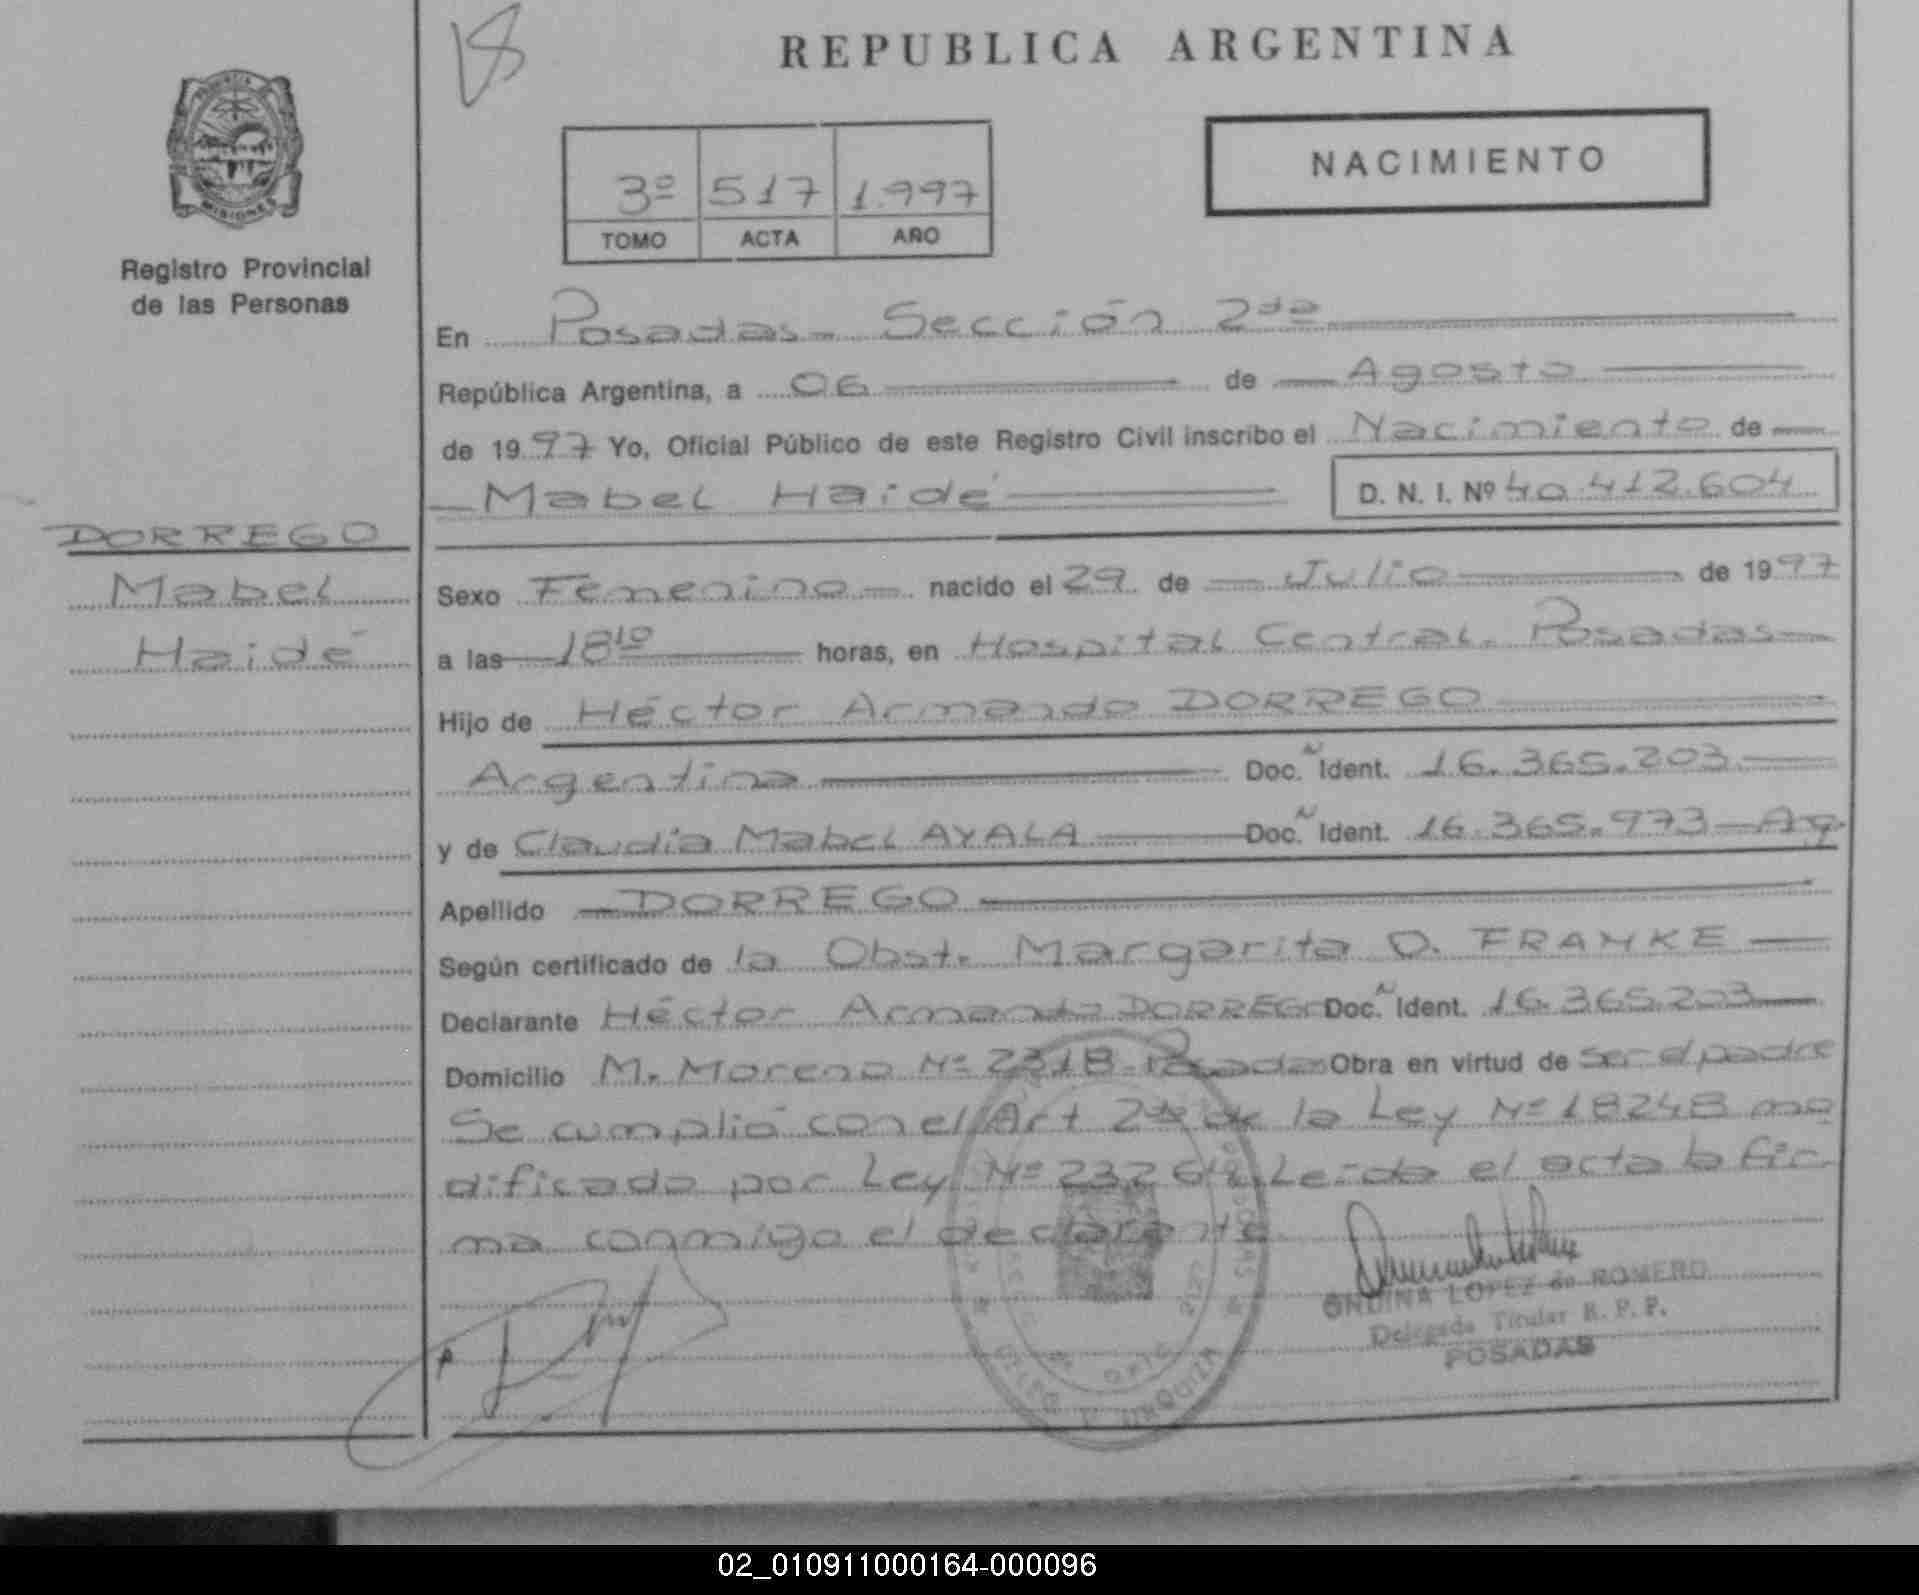 REPUBLICA ARGENTINA
NACIMIENTO
3º 517 1.997
TOMO ACTA AÑO
MISIONES
Registro Provincial
de las Personas
En Posadas - Sección 2da
República Argentina, a 06 de Agosto
de 1997 Yo, Oficial Público de este Registro Civil inscribo el Nacimiento de
Mabel Haidé D. N. I. Nº 40.412.604
DORREGO
Mabel
Haidé
Sexo Femenino nacido el 29 de Julio de 1997
a las 18 10 horas, en Hospital Central - Posadas
Hijo de Héctor Armando DORREGO
Argentina Doc. Ident. 16.365.203
y de Claudia Mabel AYALA Doc. Ident. 16.365.973 - Ag
Apellido DORREGO
Según certificado de la Obst. Margarita O. FRANKE
Declarante Héctor Armando DORREGO Doc. Ident. 16.365.203
Domicilio M. Moreno Nº 2318 - Posadas Obra en virtud de ser el padre
Se cumplió con el Art 2do de la Ley Nº 18248 mo
dificada por Ley Nº 23264. Leída el acta la fir
ma conmigo el declarante
ONDINA LOPEZ de ROMERO
Delegada Titular R. P. P.
POSADAS
02_010911000164-000096